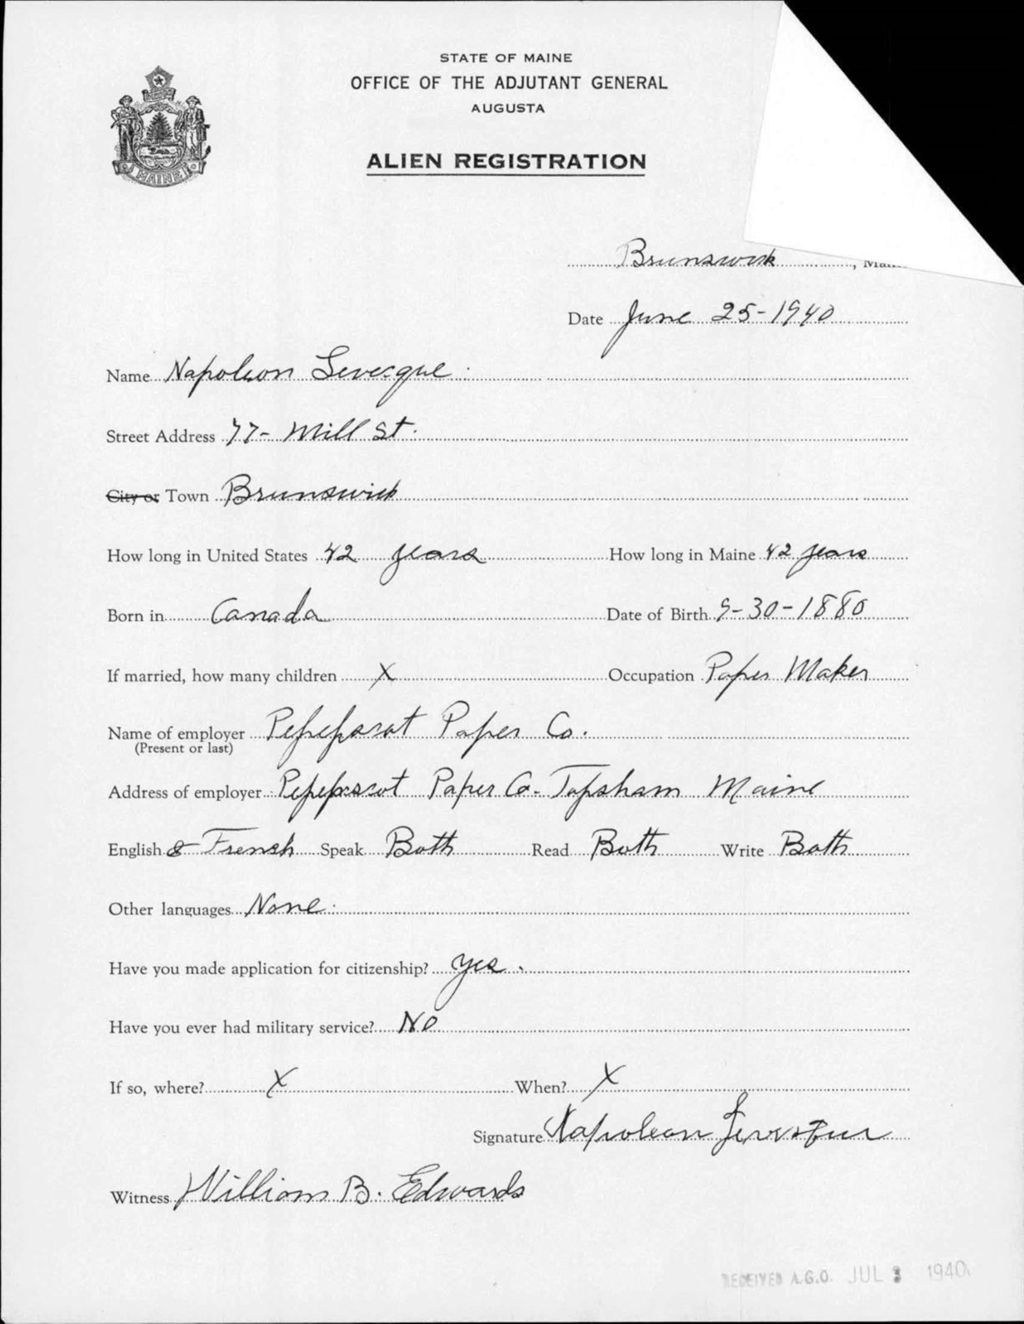 STATE OF MAINE
OFFICE OF THE ADJUTANT GENERAL
AUGUSTA
MAINE
ALIEN REGISTRATION
Brunswick, Maine
Date June 25-1940
Name Napoleon Levecque
Street Address 77- Mill St.
City or Town Brunswick
How long in United States 42 years How long in Maine 42 years
Born in Canada Date of Birth 9-30-1880
If married, how many children X Occupation Paper Maker
Name of employer Pejepscot Paper Co.
(Present or last)
Address of employer Pejepscot Paper Co. Topsham Maine
English & French Speak Both Read Both Write Both
Other languages None.
Have you made application for citizenship? Yes.
Have you ever had military service? No
If so, where? X When? X
Signature Napolean
Witness William B. Edwards
RECEIVED A.G.O. JUL 3 1940